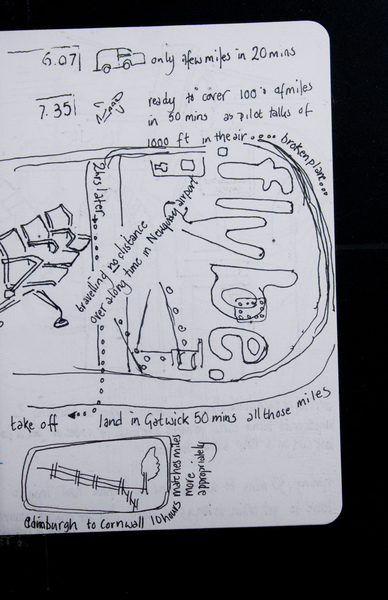 6.07 only a few miles in 20 mins
7.35 ready to cover 100's of miles
in 50 mins as pilot talks of
1000 ft in the air.... broken plane...
flybe
2hrs later
travelling no distance
over a long time in Newquay airport
take off ... land in Gatwick 50 mins all those miles
matches miles
more
appropriately
Edinburgh to Cornwall 10 hours